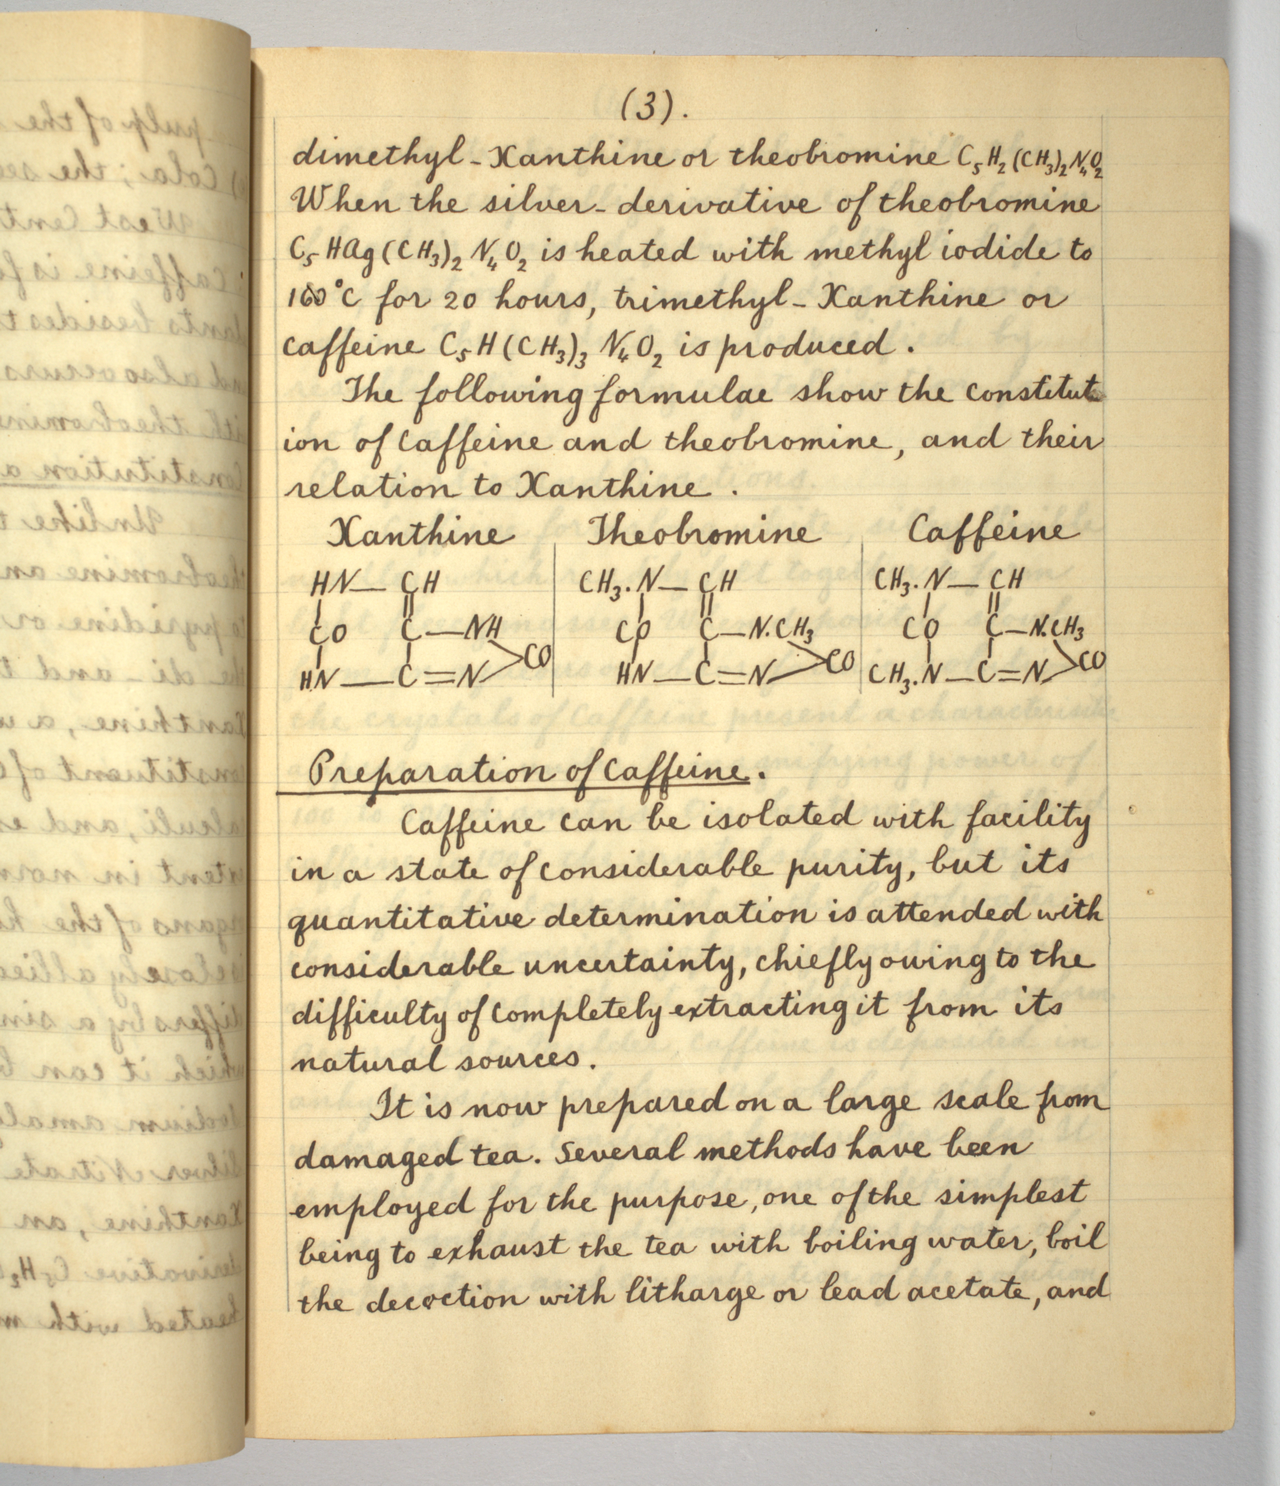 (3).
dimethyl-Xanthine or theobromine C₅H₂(CH₃)₂N₄O₂
When the silver-derivative of theobromine
C₅HAg(CH₃)₂N₄O₂ is heated with methyl iodide to
160°C for 20 hours, trimethyl-Xanthine or
caffeine C₅H(CH₃)₃N₄O₂ is produced.
The following formulae show the constitut
ion of Caffeine and theobromine, and their
relation to Xanthine.
Xanthine Theobromine Caffeine
HN—CH CH₃.N—CH CH₃.N—CH
CO C—NH CO C—N.CH₃ CO C—N.CH₃
HN—C=N>CO HN—C=N>CO CH₃.N—C=N>CO
Preparation of Caffeine.
Caffeine can be isolated with facility
in a state of considerable purity, but its
quantitative determination is attended with
considerable uncertainty, chiefly owing to the
difficulty of completely extracting it from its
natural sources.
It is now prepared on a large scale from
damaged tea. Several methods have been
employed for the purpose, one of the simplest
being to exhaust the tea with boiling water, boil
the decoction with litharge or lead acetate, and